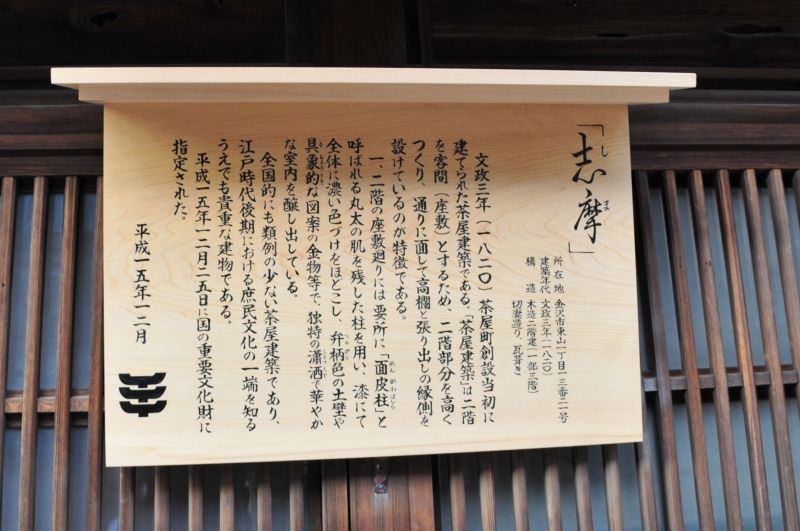 「志摩」
しま
所在地　金沢市東山一丁目一三番二一号
建築年代　文政三年（一八二〇）
構造　木造二階建（一部三階）
切妻造り、瓦葺き
文政三年（一八二〇）茶屋町創設当初に
建てられた茶屋建築である。「茶屋建築」は二階
を客間（座敷）とするため、二階部分を高く
つくり、通りに面して高欄と張り出しの縁側を
設けているのが特徴である。
一、二階の座敷廻りには要所に「面皮柱」と
めんかわばしら
呼ばれる丸太の肌を残した柱を用い、漆にて
全体に濃い色づけをほどこし、弁柄色の土壁や
べんがら
具象的な図案の金物等で、独特の瀟洒で華やか
な室内を醸し出している。
全国的にも類例の少ない茶屋建築であり、
江戸時代後期における庶民文化の一端を知る
うえでも貴重な建物である。
平成一五年一二月二五日に国の重要文化財に
指定された。
平成一五年一二月